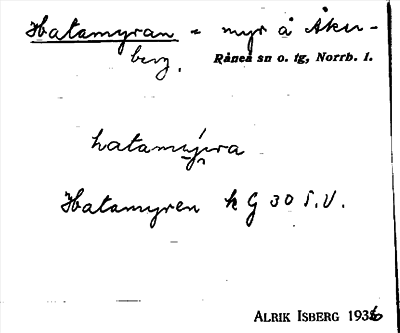 Hatamyran = myr å Åku-
berg.
Råneå sn o. tg, Norrb. l.
hatamý̨ra
Hatamyren k G 30 S.V.
ALRIK ISBERG 1936